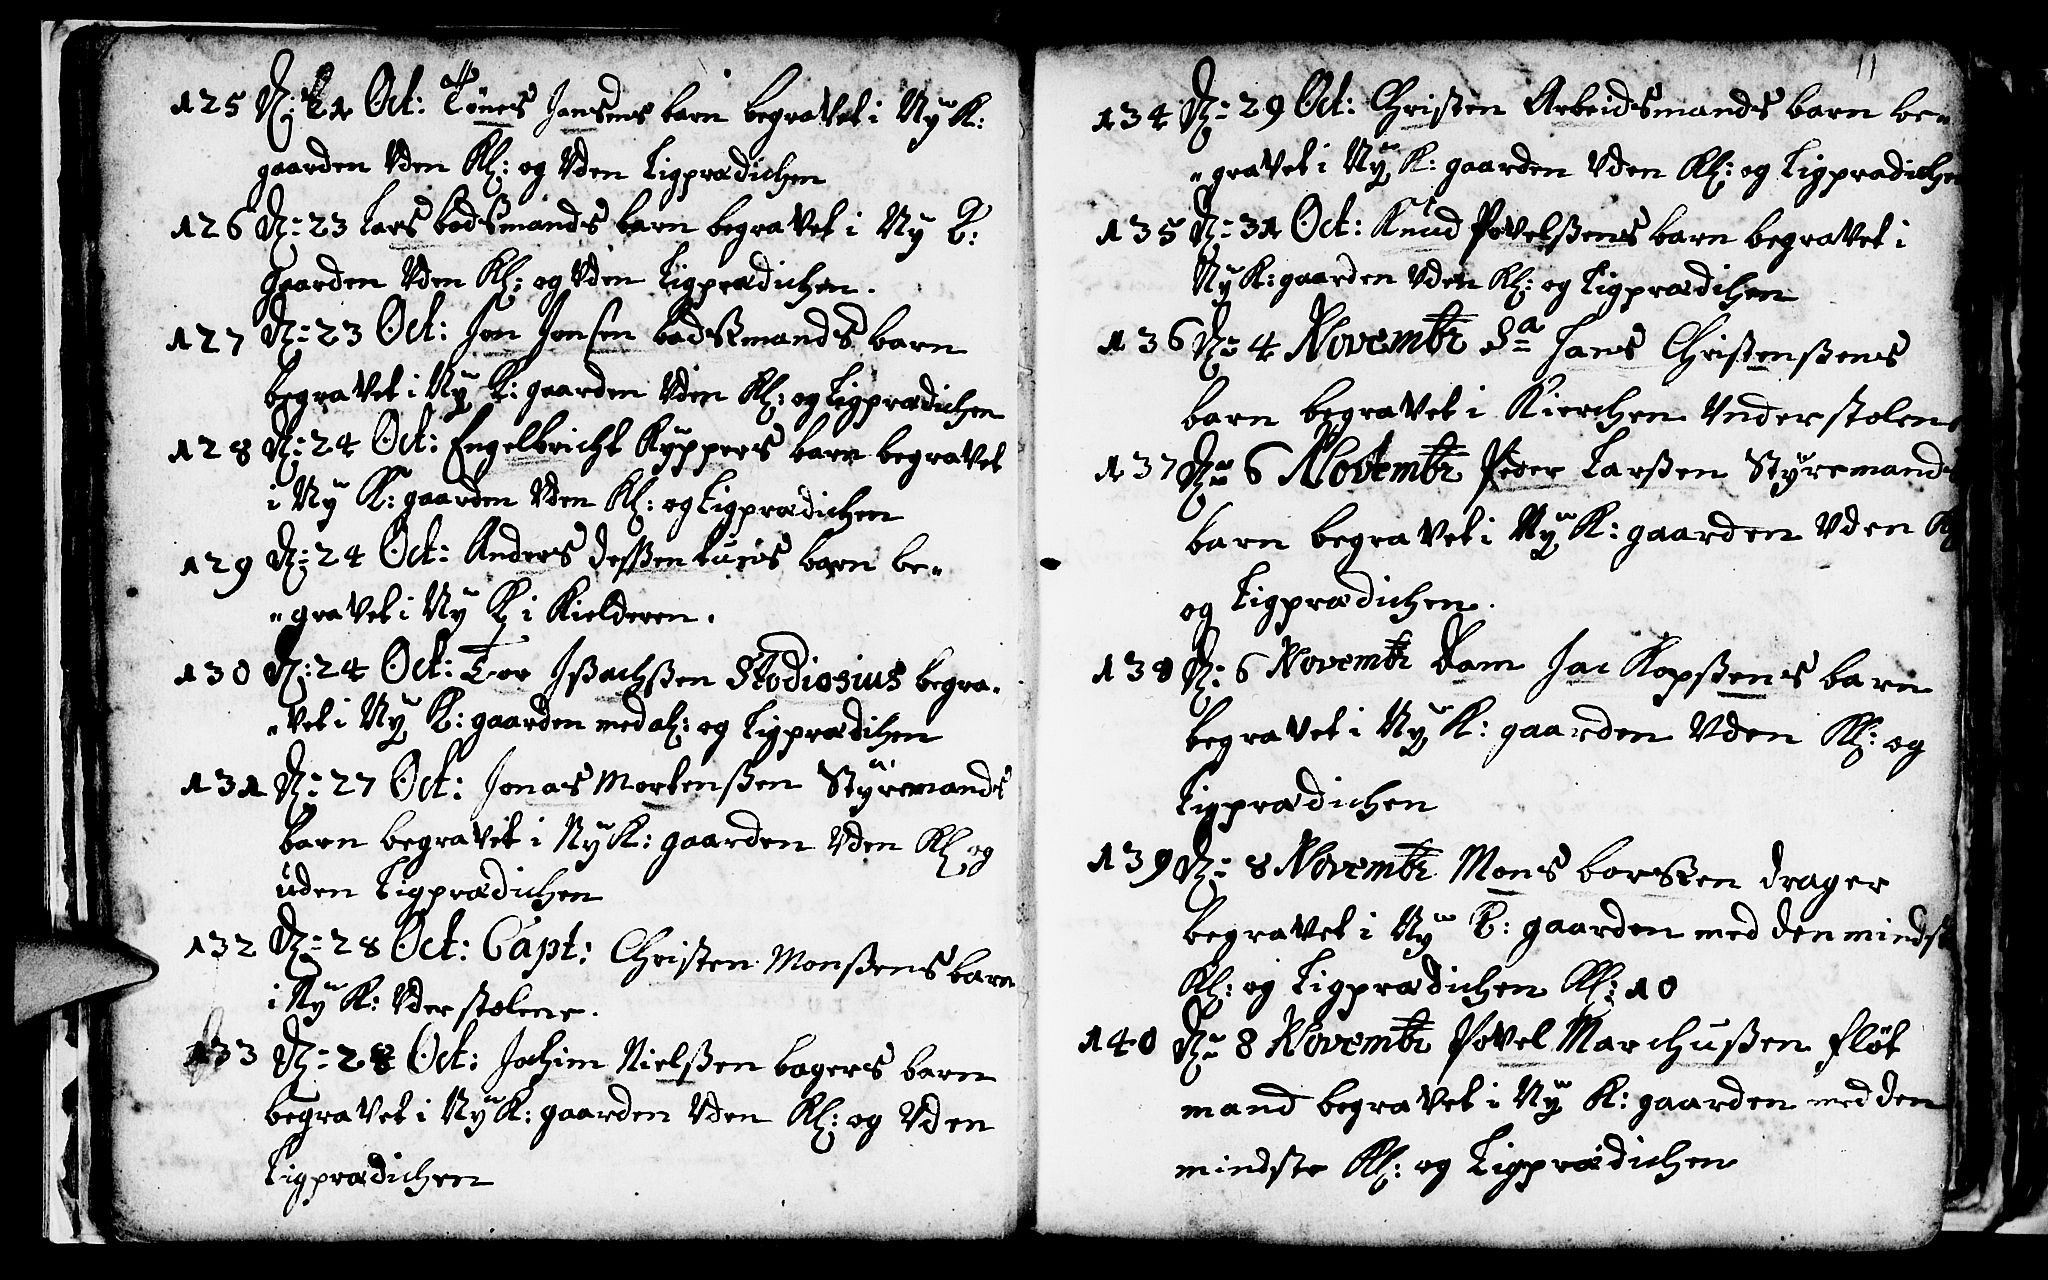 125 D: 21 Oct: Tönes Jansens barn begravet i Ny K:
gaarden Vden Kl: og Vden Ligprædichen
126 D: 23 Lars badsmands barn begravet i Ny K:
gaarden Vden Kl: og Vden Ligprædichen.
127 D: 23 Oct: Jon Jonsen badsmands barn
begravet i Ny K: gaarden Vden Kl: og Ligprædichen
128 D: 24 Oct: Engelbricht Kyppers barn begravet
i Ny K: gaarden Vden Kl: og Ligprædichen
129 D: 24 Oct: Anders barn be„
„gravet i Ny K i Kielderen.
130 D: 24 Oct: Tor Jsachsen Stodiosius begra„
„vet i Ny K: gaarden med al: og Ligprædichen
131 D: 27 Oct: Jonas Mortensen Styremands
barn begravet i Ny K: gaarden Vden Kl: og
uden Ligprædichen
132 D: 28 Oct: Capt: Christen Monsens barn
i Ny K: Vder stolene.
133 D: 28 Oct: Jochim Nielsen bagers barn
begravet i Ny K: gaarden Vden Kl: og Vden
Ligprædichen
11
134 D: 29 Oct: Christen Arbeidsmands barn be„
„gravet i Ny K: gaarden Vden Kl: og Ligprædichen
135 D: 31 Oct: Knud Povelsens barn begravet i
Ny K: gaarden Vden Kl: og Ligprædichen
136 D: 4 Novembr Sa Hans Christensens
barn begravet i Kierchen Vnder stolene
137 D: 6 Novembr Peder Larsen Styremands
barn begravet i Ny K: gaarden Vden Kl
og Ligprædichen.
138 D: 6 Novembr Dam Jac Kopsens barn
begravet i Ny K: gaarden Vden Kl: og
Ligprædichen
139 D: 8 Novembr Mons drager
begravet i Ny K: gaarden med den mindste
Kl: og Ligprædichen Kl: 10
140 D: 8 Novembr Povel Marchusen fløt
mand begravet i Ny K: gaarden med den
mindste Kl: og Ligprædichen